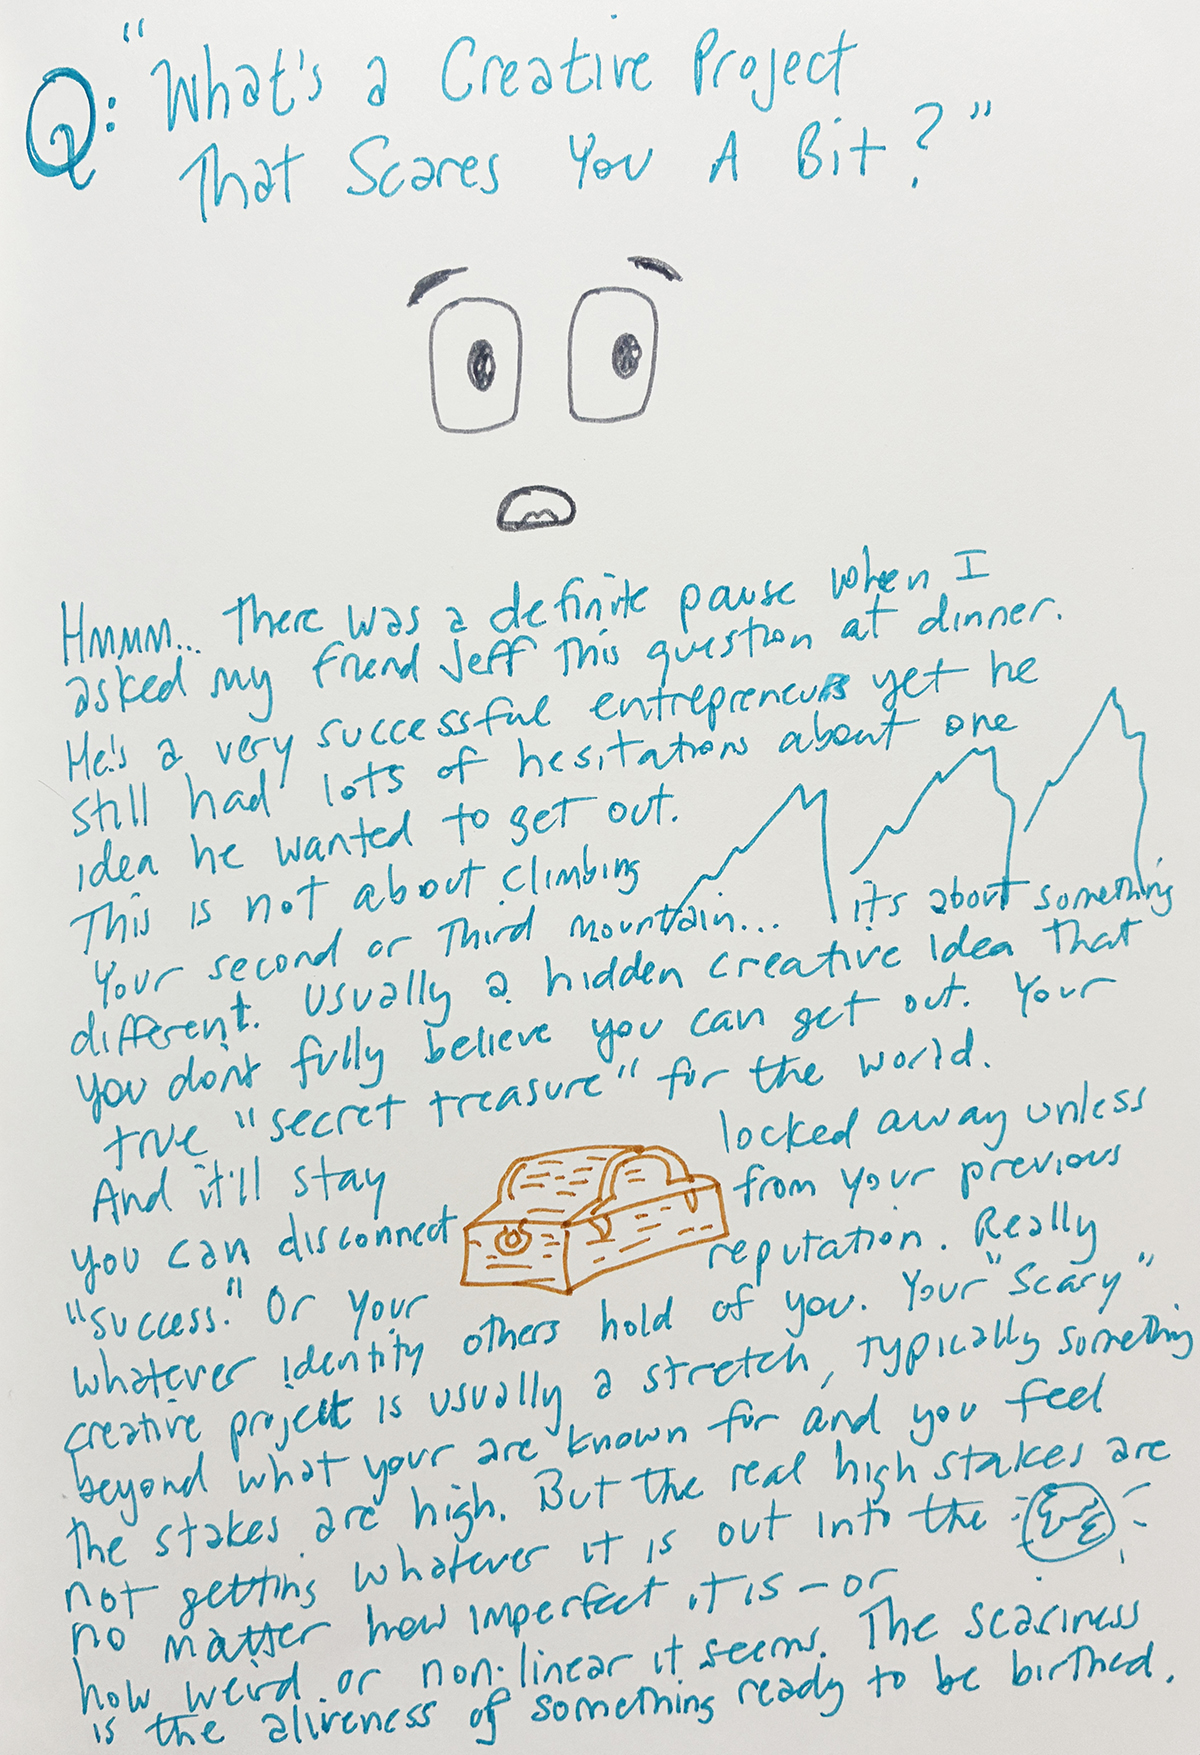 Q: "What's a Creative Project
That Scares You A Bit?"
Hmmm... There was a definite pause when I
asked my friend Jeff this question at dinner.
He's a very successful entrepreneur yet he
still had lots of hesitations about one
idea he wanted to get out.
This is not about climbing
Your second or Third mountain... it's about something
different. Usually a hidden creative idea that
you don't fully believe you can get out. Your
true "secret treasure" for the world.
And it'll stay locked away unless
you can disconnect from your previous
"success." Or your reputation. Really
whatever identity others hold of you. Your "Scary"
creative project is usually a stretch, typically something
beyond what your are known for and you feel
the stakes are high. But the real high stakes are
not getting whatever it is out into the
no matter how imperfect it is - or
how weird or non-linear it seems. The scariness
is the aliveness of something ready to be birthed.